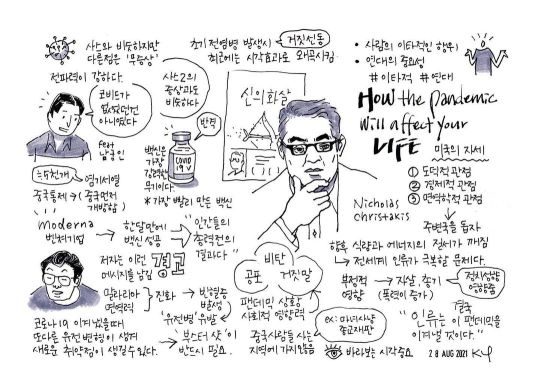 사스와 비슷하지만
다른점은 '무증상'
전파력이 강하다.
코비드가
없었던건
아니었다
feat
남궁인
사스2의
증상과도
비슷하다
초기 전염병 발생시 거짓선동
최근에는 시각효과로 왜곡시킴
신의화살
반격
COVID
19 V
백신은
가장
강력한
무기이다.
* 가장 빨리 만든 백신
• 사람의 이타적인 행위
• 연대의 중요성
#이타적 #연대
How the pandemic
Will affect your
LIFE
미국의 자세
① 도덕적 관점
② 경제적 관점
③ 면역학적 관점
주변국을 돕자
염기서열
중국통제 → (중국먼저
개방함)
Moderna
벤처기업
한달만에
백신 성공
"인간들의
총력전의
결과다"
저자는 이런 경고
메시지를 남김
말라리아
면역력
진화
빈혈증
발생
'유전병' 유발
코로나19 이겨냈을때
또다른 유전 변형이 생겨
새로운 취약점이 생길수있다.
'부스터 샷'이
반드시 필요.
Nicholas
Christakis
비탄
공포
거짓말
팬데믹 상황
사회적 영향력
중국사람들 사는
지역에 가지않음
ex: 마녀사냥
종교재판
바라보는 시각중요
향후 식량과 에너지의 질서가 깨짐
→ 전세계 인류가 극복할 문제다.
부정적
영향
자살, 총기
(폭력이 증가)
정치성향
영향줌
결국
"인류는 이 팬데믹을
이겨낼 것이다."
28 AUG 2021